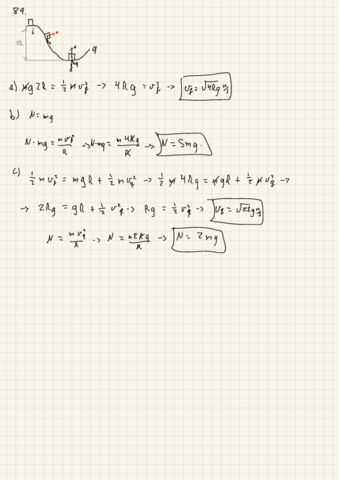 89.
i
2R
q
a) mg2R = ½mv_f² → 4Rg = v_f² → v_f = √4Rg m/s
b) N = mg
N - mg = mv_f²/R → N - mg = m4Rg/R → N = 5mg.
c) ½mv_f² = mgR + ½mv_q² → ½m 4Rg = mgR + ½mv_q² →
→ 2Rg = gR + ½v_q² → Rg = ½v_q² → v_q = √2Rg m/s
N = mv_q²/R → N = m2Rg/R → N = 2mg